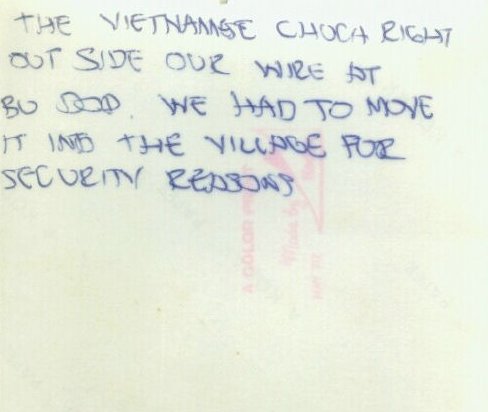 THE VIETNAMESE CHUCH RIGHT
OUT SIDE OUR WIRE AT
BU DOP. WE HAD TO MOVE
IT INTO THE VILLAGE FOR
SECURITY REASONS
A COLOR PR
Made by